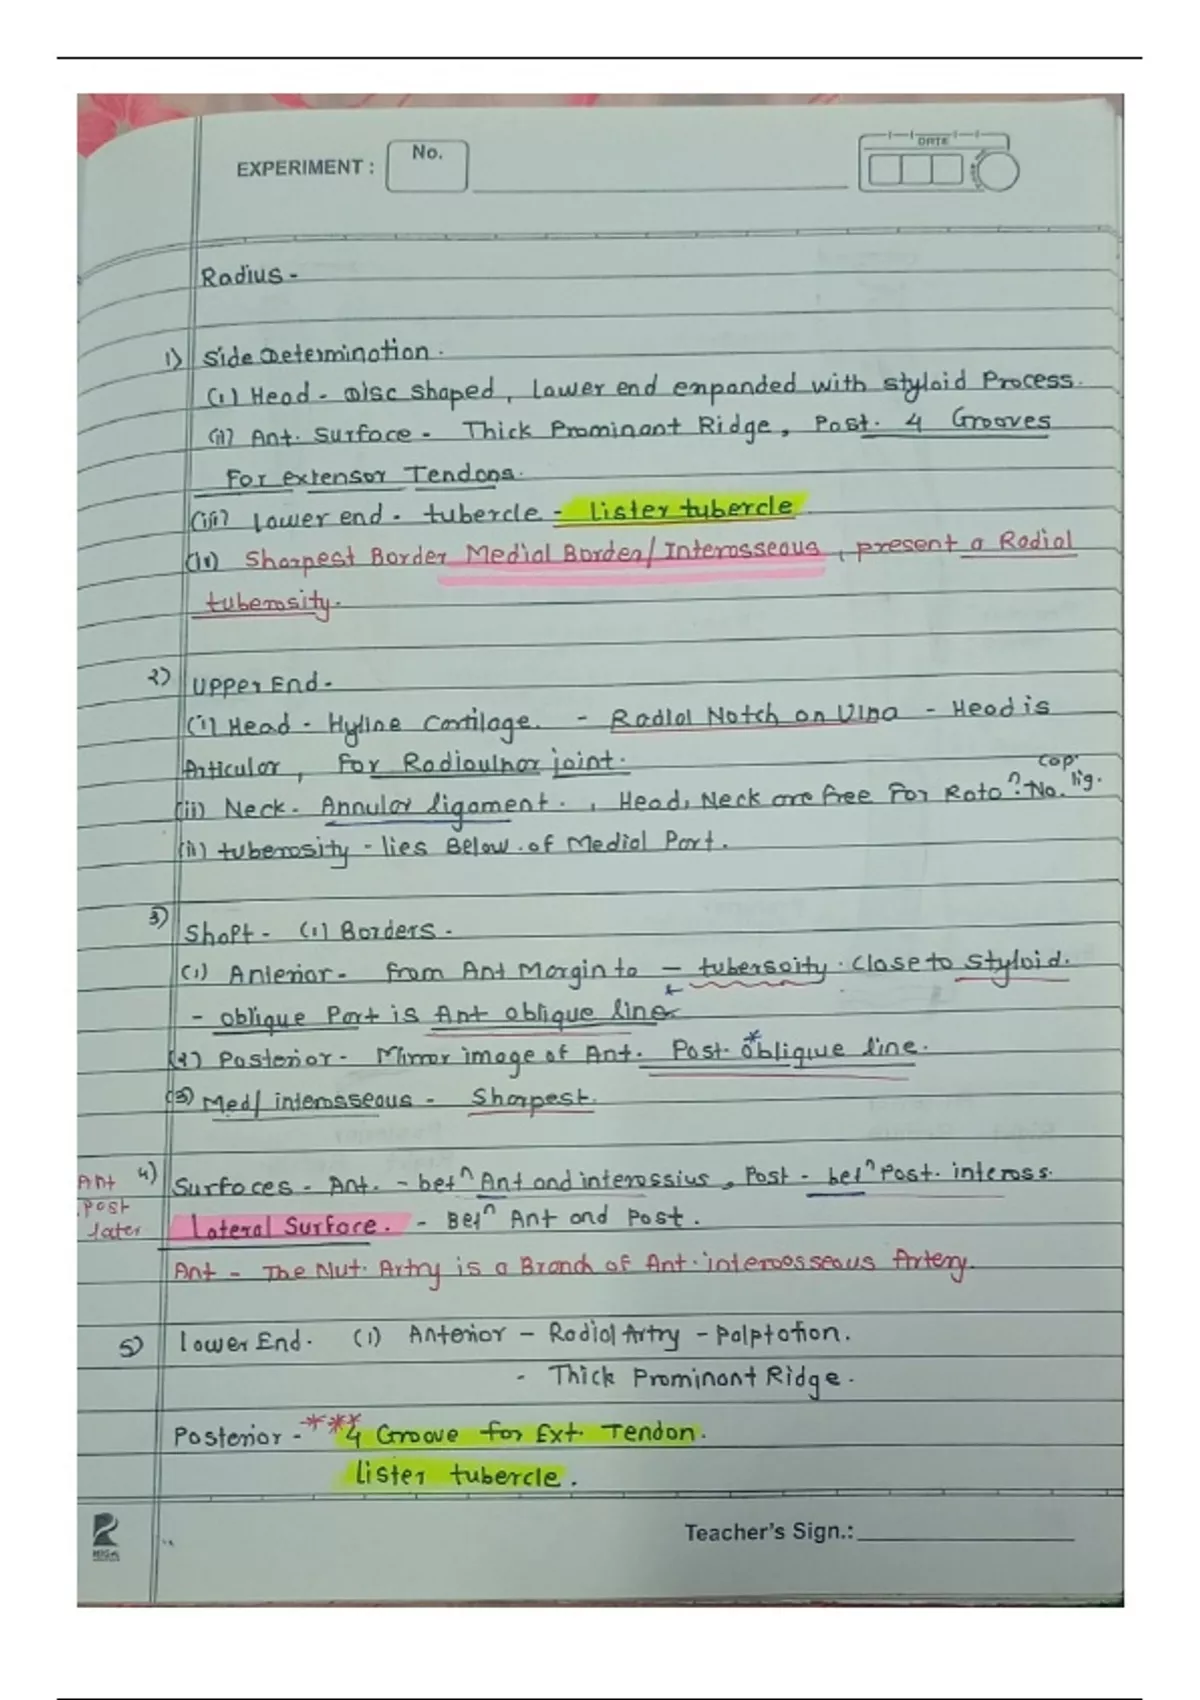 EXPERIMENT :
No.
DATE
Radius -
1) Side Determination.
(i) Head - Disc shaped, Lower end expanded with styloid Process.
(ii) Ant. Surface - Thick Prominant Ridge, Post. 4 Grooves
For extensor Tendons.
(iii) Lower end - tubercle - lister tubercle.
(iv) Sharpest Border Medial Border/Interosseous, present a Radial
tuberosity.
2) Upper End -
(i) Head - Hyline Cartilage. - Radial Notch on Ulna - Head is
Articular, For Radioulnar joint.
cap.
(ii) Neck - Annular ligament., Head, Neck are free For Rotaⁿ. No. lig.
(iii) tuberosity - lies Below of Medial Part.
3) Shaft - (1) Borders -
(1) Anterior - from Ant Margin to - tubersoity. Close to Styloid.
- oblique Part is Ant oblique line
(2) Posterior - Mirror image of Ant. Post. oblique line.
(3) Med/ interosseous - Sharpest.
4) Surfaces - Ant. - betⁿ Ant and interossius, Post - betⁿ Post. inteross.
Ant
Post
later
Lateral Surface. - Betⁿ Ant and Post.
Ant - The Nut. Artry is a Branch of Ant. interoesseous Artery.
5) Lower End. (1) Anterior - Radial Artry - Palptation.
- Thick Prominant Ridge.
Posterior - *** 4 Groove for Ext. Tendon.
lister tubercle.
Teacher's Sign.: